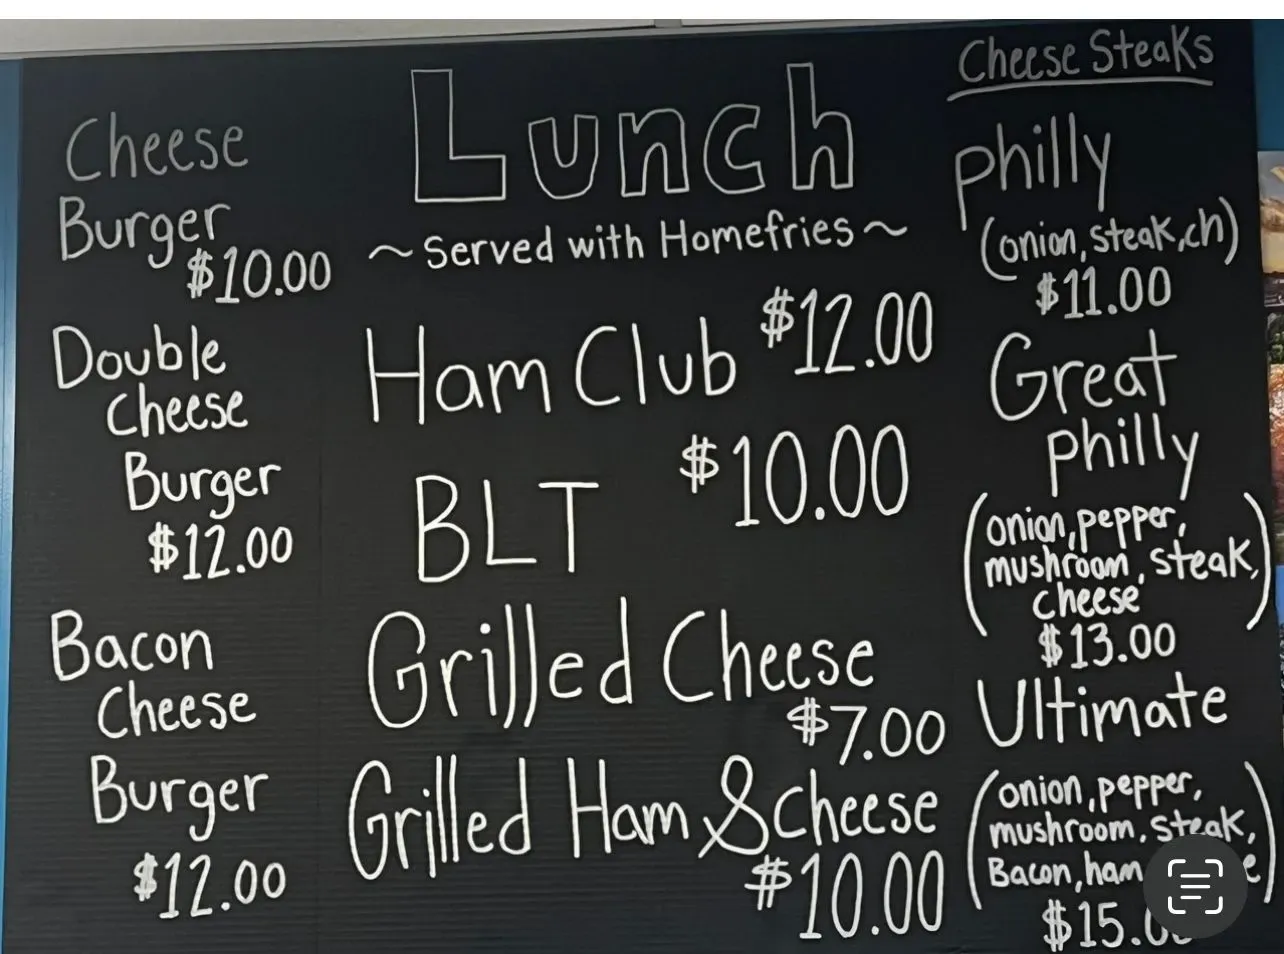 Lunch
~Served with Homefries~
Cheese
Burger
$10.00
Double
Cheese
Burger
$12.00
Bacon
Cheese
Burger
$12.00
Ham Club $12.00
BLT $10.00
Grilled Cheese
$7.00
Grilled Ham & Cheese
$10.00
Cheese Steaks
Philly
(onion, steak, ch)
$11.00
Great
Philly
(onion, pepper,
mushroom, steak,
cheese)
$13.00
Ultimate
(onion, pepper,
mushroom, steak,
Bacon, ham
$15.0